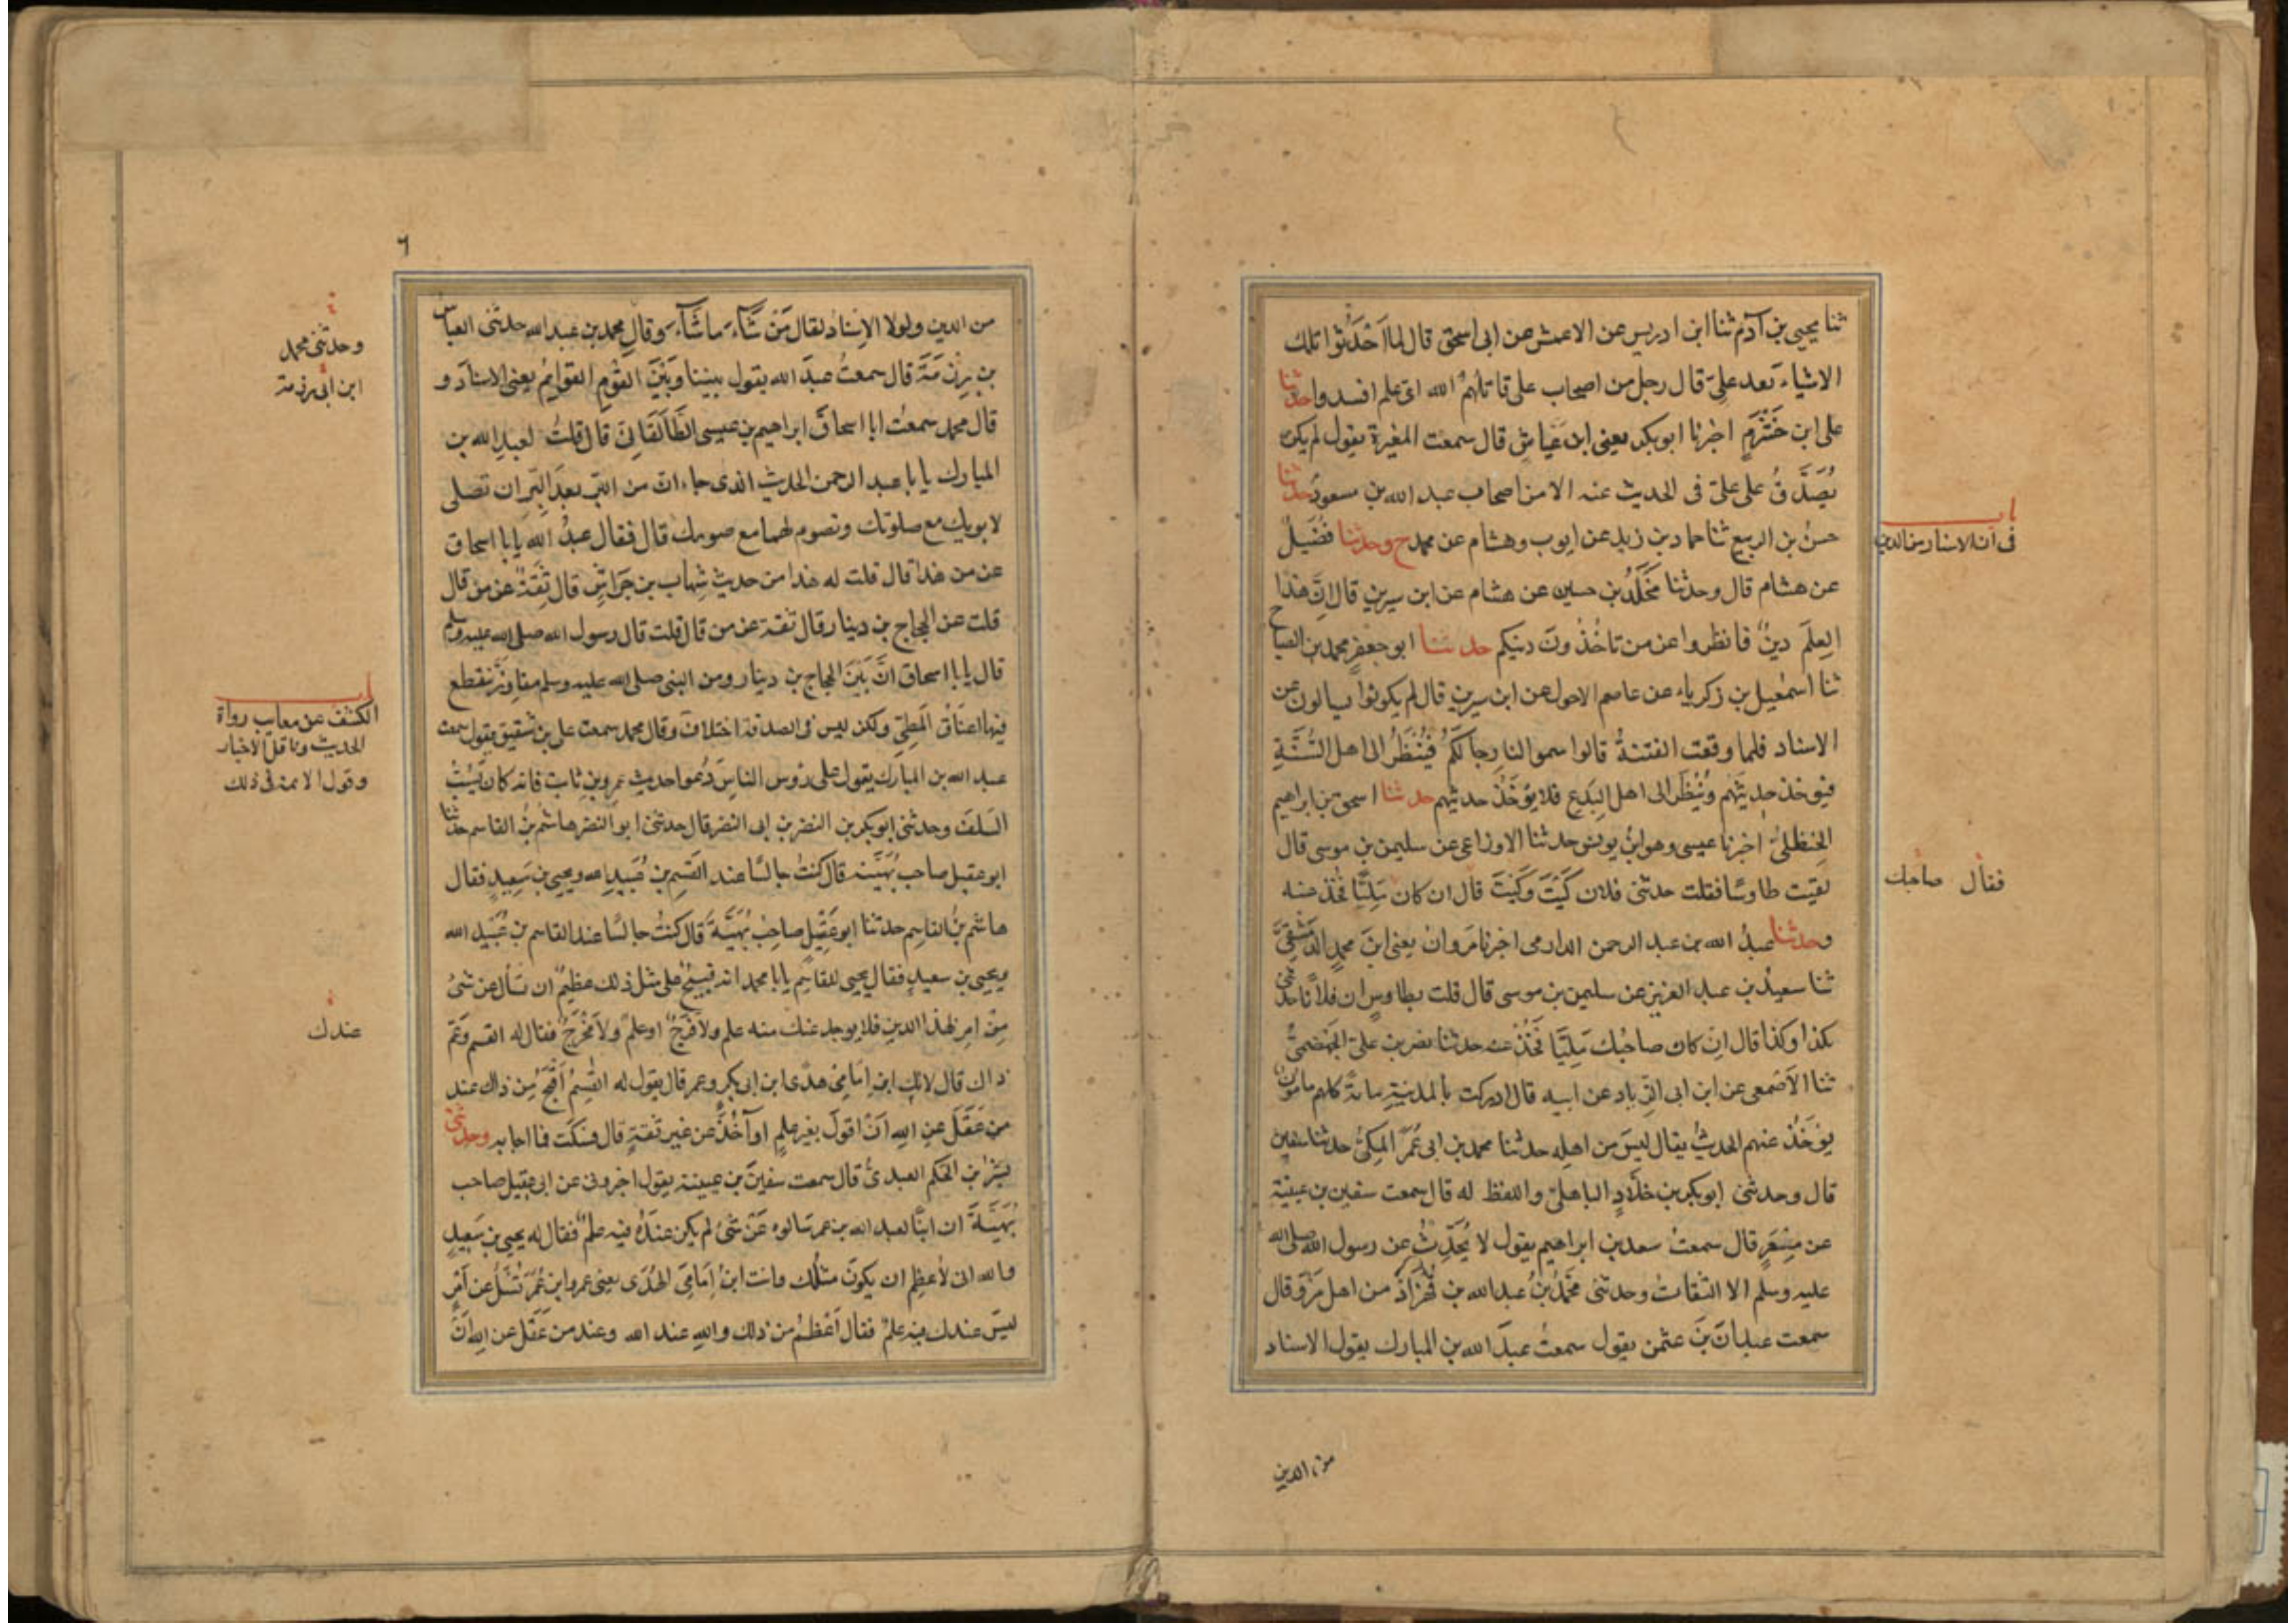 ثنا يحيى بن آدم ثنا ابن ادريس عن الاعمش عن ابى اسحق قال لما اَحْدَثوا تلك
الاشياء بَعد علىّ قال رجل من اصحاب على قاتلهمُ الله اىّ علم افسدوا حدثنا
على ابن خَشْرَمٍ اخبرنا ابو بكر يعنى ابن عَيّاش قال سمعت المغيرة يقول لم يكن
يُصَدَّقُ على علىّ فى الحديث عنه الا من اصحاب عبد الله بن مسعودٍ حدثنا
حسنُ بن الربيع ثنا حماد بن زيد عن ايوب وهشام عن محمد ح وحدثنا فُضَيلُ
عن هشام قال وحدثنا مَخْلَدُ بن حسين عن هشام عن ابن سيرين قال اِنّ هٰذا
العِلمَ دينٌ فانظروا عن من تاخُذُونَ دينكم حدثنا ابو جعفرٍ محمد بن الصباح
ثنا اسمٰعيل بن زكرياء عن عاصم الاحول عن ابن سيرين قال لم يكونوا يسالون عن
الاسناد فلما وقعت الفتنةُ قالوا سموا لنا رجالَكُم فَيُنْظَرُ الى اهل السُّنَّةِ
فيوخذ حديثهم ويُنْظَرُ الى اهل البِدَع فلا يؤخَذُ حديثهم حدثنا اسحق بن ابراهيم
الحنظلىُّ اخبرنا عيسى وهو ابنُ يونس حدثنا الاوزاعى عن سليمن بن موسى قال
لقيت طاوسًا فقلت حدثنى فلان كَيْتَ وَكَيْتَ قال ان كان مَلِيًّا فخُذ عنه
وحدثنا عبدُ الله بن عبد الرحمن الدارمى اخبرنا مَروانُ يعنى ابنَ محمدٍ الدِّمَشْقِىَّ
ثنا سعيدُ بن عبد العزيز عن سليمن بن موسى قال قلت لطاوسٍ ان فلانًا حدثنى
بكذا وكذا قال اِن كان صاحبُك مَلِيًّا فَخُذْ عنه حدثنا نصر بن علىّ الجَهْضَمِىُّ
ثنا الاَصْمعى عن ابن ابى الزِّناد عن ابيه قال ادركت بالمدينةِ مائةً كلهم مامونٌ
يؤخَذُ عنهم الحديثُ يقال ليسَ من اهله حدثنا محمد بن ابى عُمَرَ المكىُّ حدثنا سفين
قال وحدثنى ابو بكر بن خلّادٍ الباهلىّ واللفظ له قال سمعت سفين بن عيينة
عن مِسْعَرٍ قال سمعتُ سعد بن ابراهيم يقول لا يُحَدِّثُ عن رسول الله صلى الله
عليه وسلم الا الثقاتُ وحدثنى مُحَمَّدُ بنُ عبد الله بن قُهْزَاذَ من اهل مَرْوَ قال
سمعت عبدانَ بنَ عثمن يقول سمعتُ عبدَ الله بن المبارك يقول الاسناد
باب
فى ان الاسناد من الدين
فقال صاحبك
من الدين
٦
من الدين ولولا الاِسنادُ لقال مَنْ شَآءَ ما شَآءَ وقال محمد بن عبد الله حدثنى العباس
بن رِزْمَةَ قال سمعتُ عبدَ الله يقول بيننا وَبَيْنَ القَوْمِ القوايمُ يعنى الاسنادَ و
قال محمد سمعت ابا اسحاقَ ابراهيم بن عيسى الطَّالَقَانِىَّ قال قلتُ لعبدِ الله بن
المبارك يابا عبد الرحمن الحديث الذى جاء ان من البِرّ بعدَ البِرّ ان تصلى
لابويك مع صلوتك وتصوم لهما مع صومك قال فقال عبدُ الله يابا اسحاق
عن من هٰذا قال قلت له هذا من حديث شِهاب بن خِرَاشٍ قال ثِقَةٌ عن من قال
قلت عن الحجاج بن دينار قال ثقة عن من قال قلت قال رسول الله صلى الله عليه وسلم
قال يابا اسحاق انَّ بَيْنَ الحجاج بن دينار ومن النبى صلى الله عليه وسلم مفاوز تنقطع
فيها اعنَاقُ المَطِىّ ولكن ليس فى الصدقة اختلافٌ وقال محمد سمعت على بن شقيق يقول سمعت
عبد الله بن المبارك يقول على رؤس الناسِ دَعوا حديث عمرو بن ثابت فانه كان يَسُبُّ
السَلفَ وحدثنى ابو بكر بن النضر بن ابى النضر قال حدثنى ابو النضر هاشم بنُ القاسم حدثنا
ابو عقيل صاحب بُهَيَّة قال كنتُ جالسًا عند القسم بن عُبيدِ الله ويحيى بن سَعِيدٍ فقال
هاشم بنُ القاسم حدثنا ابو عَقِيْلٍ صاحِبُ بُهَيَّةَ قال كنتُ جالسًا عند القاسم بن عُبَيْد الله
ويحيى بن سعيدٍ فقال يحيى للقاسِم يابا محمد انه قبيحٌ على مثلك عظيمٌ ان تسأل عن شئ
مِنْ امرِ هٰذا الدينِ فلا يوجد عندك منه علم ولا فرجٌ او علمٌ ولا مَخْرَجٌ فقال له القسم وَعَمّ
ذاك قال لانك ابن اِمامَىْ هدًى ابن ابى بكرٍ وعمر قال يقول له القٰسِمُ اَقْبَحُ مِن ذاك عند
من عَقَلَ عنِ اللهِ اَنْ اقولَ بغير علمٍ او آخُذَ عن غيرِ ثقةٍ قال فسكت فما اجابه وحدثنى
بشرُ بن الحكم العبدىُّ قال سمعت سفينَ بن عيينة يقول اخبرونى عن ابى عقيل صاحب
بُهَيَّةَ ان ابنًا لعبد الله بن عمر سالوه عَنْ شئٍ لم يكن عندَهُ فيه علمٌ فقال له يحيى بن سَعِيدٍ
والله انى لأُعظِم ان يكونَ مثلُك وانت ابنُ اِمَامَىِ الهُدَى يعنى عمر وابن عُمَرَ تُسْئَلُ عن اَمْرٍ
ليسَ عندك فيه علمٌ فقال اَعْظَمُ من ذلك واللهِ عند الله وعند من عَقَل عن اللهِ اَنْ
وحدثنى محمد
ابن ابى رزمة
باب
الكشف عن معايب رواة
الحديث وناقل الاخبار
وقول الائمة فى ذلك
عندك